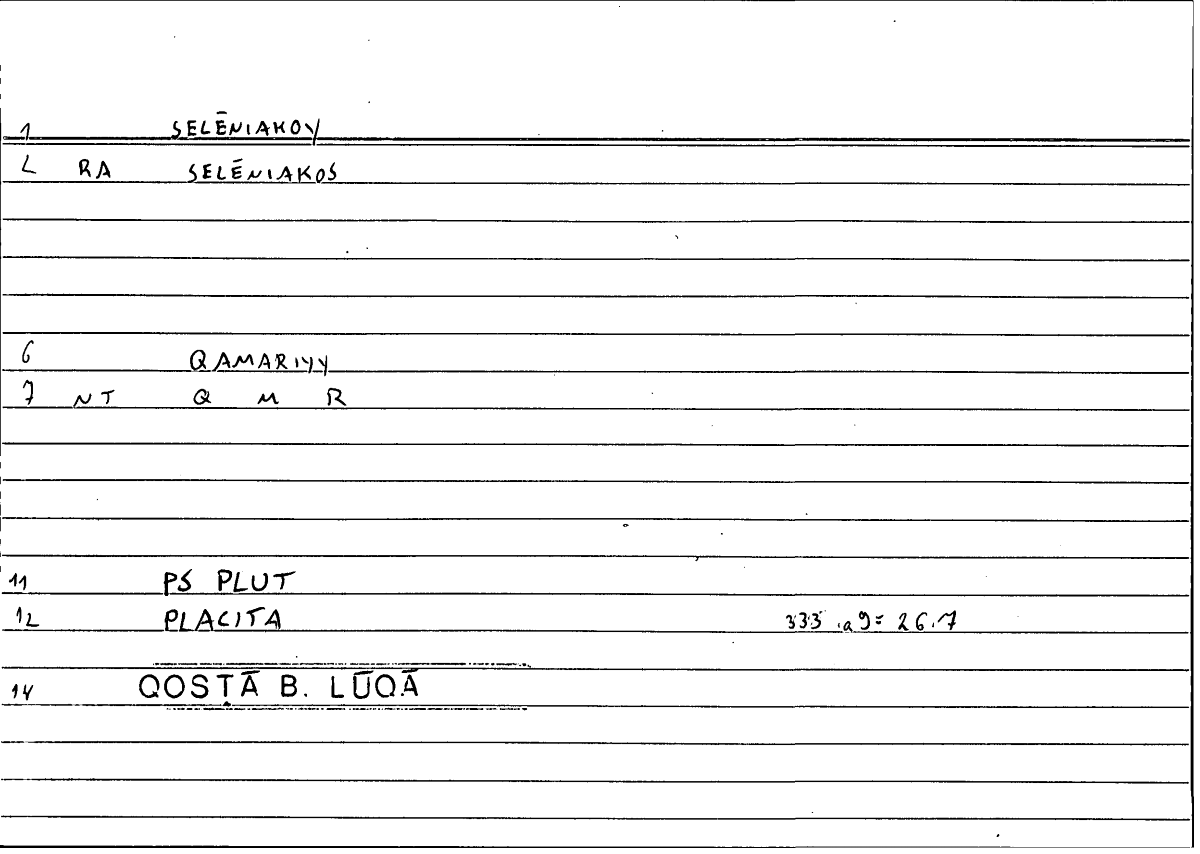 1 SELĒNIAKOY
2 RA SELĒNIAKOS
6 QAMARIYY
7 NT Q M R
11 PS PLUT
12 PLACITA 333.a9= 26.7
14 QOSṬĀ B. LŪQĀ